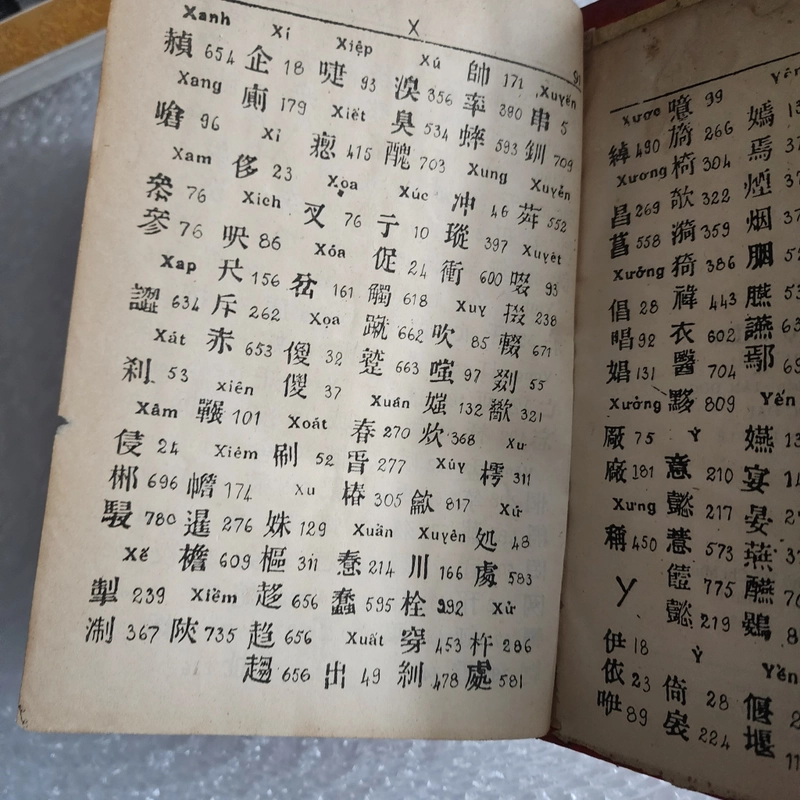 X
91
Xanh
赬 654
Xang
嗆 96
Xam
叅 76
參 76
Xap
譅 634
Xát
刹 53
Xâm
侵 24
郴 696
駸 780
Xế
掣 239
淛 367
Xí
企 18
廁 179
Xỉ
侈 23
Xich
呎 86
尺 156
斥 262
赤 653
xiên
101
Xiêm
幨 174
暹 276
襜 609
Xiểm
陝 735
Xiệp
啑 93
Xiết
瘛 415
Xọa
叉 76
Xóa
岔 161
Xọa
傻 32
傻 37
Xoát
刷 52
Xu
姝 129
樞 311
趍 656
趋 656
趨 656
Xú
溴 356
臭 534
醜 703
Xúc
亍 10
促 24
觸 618
蹴 662
蹙 663
Xuân
春 270
277
椿 305
Xuẩn
惷 214
蠢 595
Xuất
出 49
帥 171
率 390
蟀 593
Xung
冲 46
瑽 397
衝 600
Xuy
吹 85
嗤 97
媸 132
炊 368
Xúy
龡 817
Xuyên
川 166
栓 292
穿 453
紃 478
Xuyến
串 5
釧 709
Xuyển
荈 552
Xuyết
啜 93
掇 238
輟 671
剟 55
歠 321
Xư
樗 311
Xứ
処 48
處 583
Xử
杵 286
處 581
Xược
綽 490
Xương
昌 269
菖 558
Xướng
倡 28
唱 92
娼 131
Xưởng
厰 75
廠 181
Xưng
稱 450
Y
伊 18
依 23
咿 89
噫 99
旖 266
椅 304
欹 322
漪 359
猗 386
禕 443
衣 602
醫 704
黟 809
Ý
意 210
懿 217
薏 573
饐 775
懿 219
Ỷ
倚 28
扆 224
嫣
焉
煙
烟
胭
臙
讌
鄢
Yến
嬿
宴
晏
燕
醼
鷃
Yển
偃
堰